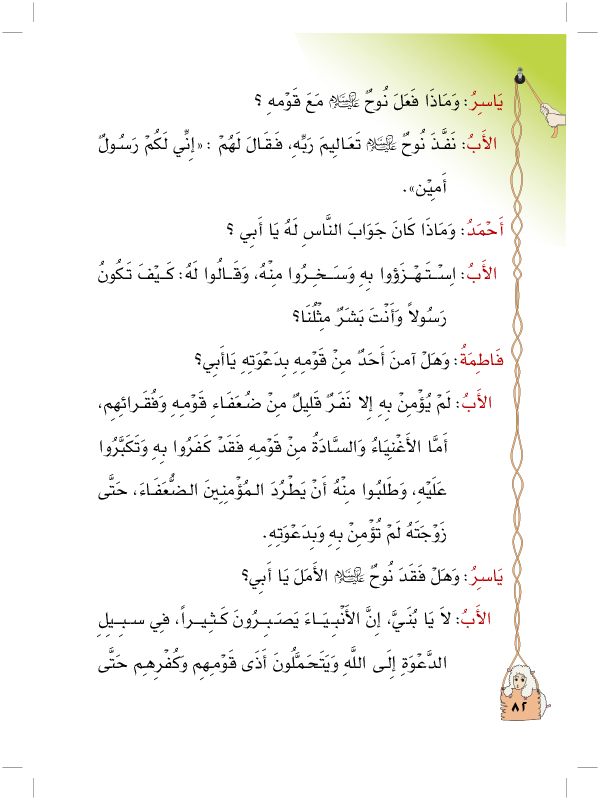 يَاسِرُ: وَمَاذَا فَعَلَ نُوحٌ عليه السلام مَعَ قَوْمِهِ ؟
الأَبُ: نَفَّذَ نُوحٌ عليه السلام تَعَالِيمَ رَبِّهِ، فَقَالَ لَهُمْ : «إِنِّي لَكُمْ رَسُولٌ
أَمِيْن».
أَحْمَدُ: وَمَاذَا كَانَ جَوَابَ النَّاسِ لَهُ يَا أَبِي ؟
الأَبُ: اِسْتَهْزَؤوا بِهِ وَسَخِرُوا مِنْهُ، وَقَالُوا لَهُ: كَيْفَ تَكُونُ
رَسُولاً وَأَنْتَ بَشَرٌ مِثْلُنَا؟
فَاطِمَةُ: وَهَلْ آمنَ أَحَدٌ مِنْ قَوْمِهِ بِدَعْوَتِهِ يَاأَبي؟
الأَبُ: لَمْ يُؤْمِنْ بِهِ إِلا نَفَرٌ قَلِيلٌ مِنْ ضُعَفَاءِ قَوْمِهِ وَفُقَرائِهِم،
أمَّا الأَغْنِيَاءُ وَالسَّادَةُ مِنْ قَوْمِهِ فَقَدْ كَفَرُوا بِهِ وَتَكَبَّرُوا
عَلَيْهِ، وَطَلَبُوا مِنْهُ أَنْ يَطْرُدَ المُؤْمِنِينَ الضُّعَفَاءَ، حَتَّى
زَوْجَتَهُ لَمْ تُؤْمِنْ بِهِ وَبِدَعْوَتِهِ.
يَاسِرُ: وَهَلْ فَقَدَ نُوحٌ عليه السلام الأَمَلَ يَا أَبي؟
الأَبُ: لاَ يَا بُنَيَّ، إِنَّ الأَنْبِيَاءَ يَصَبِرُونَ كَثِيراً، فِي سبِيلِ
الدَّعْوَةِ إِلَى اللَّهِ وَيَتَحَمَّلُونَ أَذَى قَوْمِهِم وَكُفْرِهِم حَتَّى
٨٢